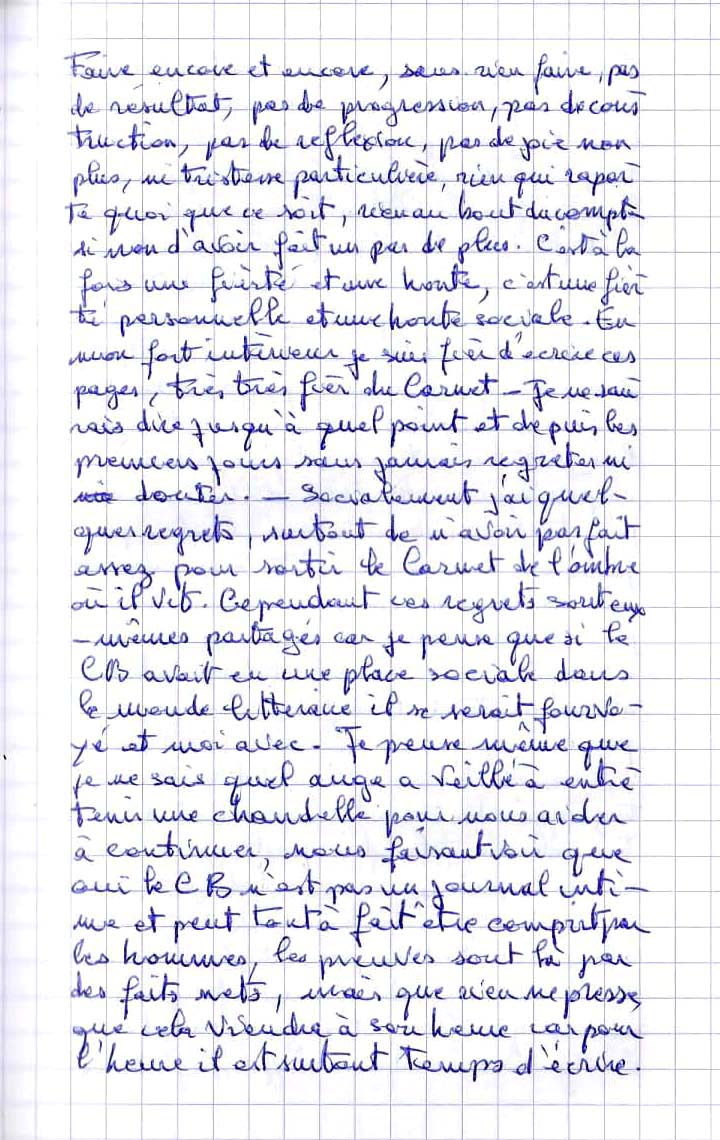 Faire encore et encore, sans rien faire, pas
de résultat, pas de progression, pas de cons
truction, pas de reflexion, pas de joie non
plus, ni tristesse particulière, rien qui rapor
te quoi que ce soit, rien au bout du compte
si non d'avoir fait un pas de plus. C'est à la
fois une fierté et une honte, c'est une fier
té personnelle et une honte sociale. En
mon fort intérieur je suis fier d'écrire ces
pages, très très fier du Carnet – Je ne sau
rais dire jusqu'à quel point et depuis les
premiers jours sans jamais regreter ni
douter. – Socialement j'ai quel-
ques regrets, surtout de n'avoir pas fait
assez pour sortir le Carnet de l'ombre
où il vit. Cependant ces regrets sont eux
-mêmes partagés car je pense que si le
CB avait eu une place sociale dans
le monde littéraire il se serait fourvo-
yé et moi avec. Je pense même que
je ne sais quel ange a veillé à entre
tenir une chandelle pour nous aider
à continuer, nous faisant voir que
oui le CB n'est pas un journal inti-
me et peut tout à fait être compris par
les hommes, les preuves sont là par
des faits nets, mais que rien ne presse,
que cela viendra à son heure car pour
l'heure il est surtout temps d'écrire.